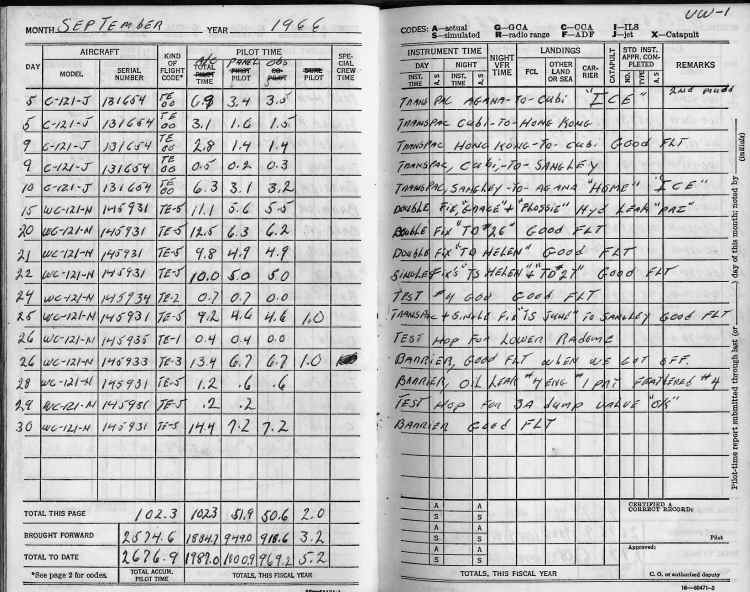 MONTH SEPTEMBER YEAR 1966
AIRCRAFT KIND OF FLIGHT CODE* PILOT TIME SPECIAL CREW TIME
DAY MODEL SERIAL NUMBER A/C TOTAL PILOT TIME PANEL PILOT OBS CO-PILOT PILOT
5 C-121-J 131654 TE 00 6.9 3.4 3.5
5 C-121-J 131654 TE 00 3.1 1.6 1.5
9 C-121-J 131654 TE 00 2.8 1.4 1.4
9 C-121-J 131654 TE 00 0.5 0.2 0.3
10 C-121-J 131654 TE 00 6.3 3.1 3.2
15 WC-121-N 145931 TE-5 11.1 5.6 5.5
20 WC-121-N 145931 TE-5 12.5 6.3 6.2
21 WC-121-N 145931 TE-5 9.8 4.9 4.9
22 WC-121-N 145931 TE-5 10.0 5.0 5.0
24 WC-121-N 145934 TE-2 0.7 0.7 0.0
25 WC-121-N 145931 TE-5 9.2 4.6 4.6 1.0
26 WC-121-N 145935 TE-1 0.4 0.4 0.0
26 WC-121-N 145933 TE-3 13.4 6.7 6.7 1.0
28 WC-121-N 145931 TE-5 1.2 .6 .6
29 WC-121-N 145931 TE-5 .2 .2
30 WC-121-N 145931 TE-5 14.4 7.2 7.2
TOTAL THIS PAGE 102.3 102.3 51.9 50.6 2.0
BROUGHT FORWARD 2574.6 1884.7 949.0 918.6 3.2
TOTAL TO DATE 2676.9 1987.0 1000.9 969.2 5.2
*See page 2 for codes. TOTAL ACCUM. PILOT TIME TOTALS, THIS FISCAL YEAR
VW-1
CODES: A—actual G—GCA C—CCA I—ILS
S—simulated R—radio range F—ADF J—jet X—Catapult
INSTRUMENT TIME NIGHT VFR TIME LANDINGS CATAPULT STD INST. APPR. COMPLETED REMARKS
DAY NIGHT FCL OTHER LAND OR SEA CARRIER NO. TYPE A, S
INST. TIME A, S INST. TIME A, S
TRANSPAC AGANA-TO-CUBI "ICE" 2nd
TRANSPAC CUBI-TO-HONG KONG
TRANSPAC HONG KONG-TO-CUBI GOOD FLT
TRANSPAC, CUBI-TO-SANGLEY
TRANSPAC, SANGLEY-TO-AGANA "HOME" "ICE"
DOUBLE FIX, "GRACE" + "FLOSSIE" HYD LEAK
DOUBLE FIX "TD #26" GOOD FLT
DOUBLE FIX "TD HELEN" GOOD FLT
SINGLE FIX'S "TS HELEN" + "TD #27" GOOD FLT
TEST #4 GOOD FLT
TRANSPAC + SINGLE FIX "TS JUNE" TO SANGLEY GOOD FLT
TEST HOP FOR LOWER RADOME
BARRIER, GOOD FLT WHEN WE GOT OFF.
BARRIER, OIL LEAK #4 ENG #1 PRT FEATHERED #4
TEST HOP FOR 3A DUMP VALVE
BARRIER GOOD FLT
A
S
A
S
A
S
A
S
CERTIFIED A CORRECT RECORD:
Pilot
Approved:
C. O. or authorized deputy
TOTALS, THIS FISCAL YEAR
16—60471-2
Pilot-time report submitted through last (or ) day of this month; noted by (initials)